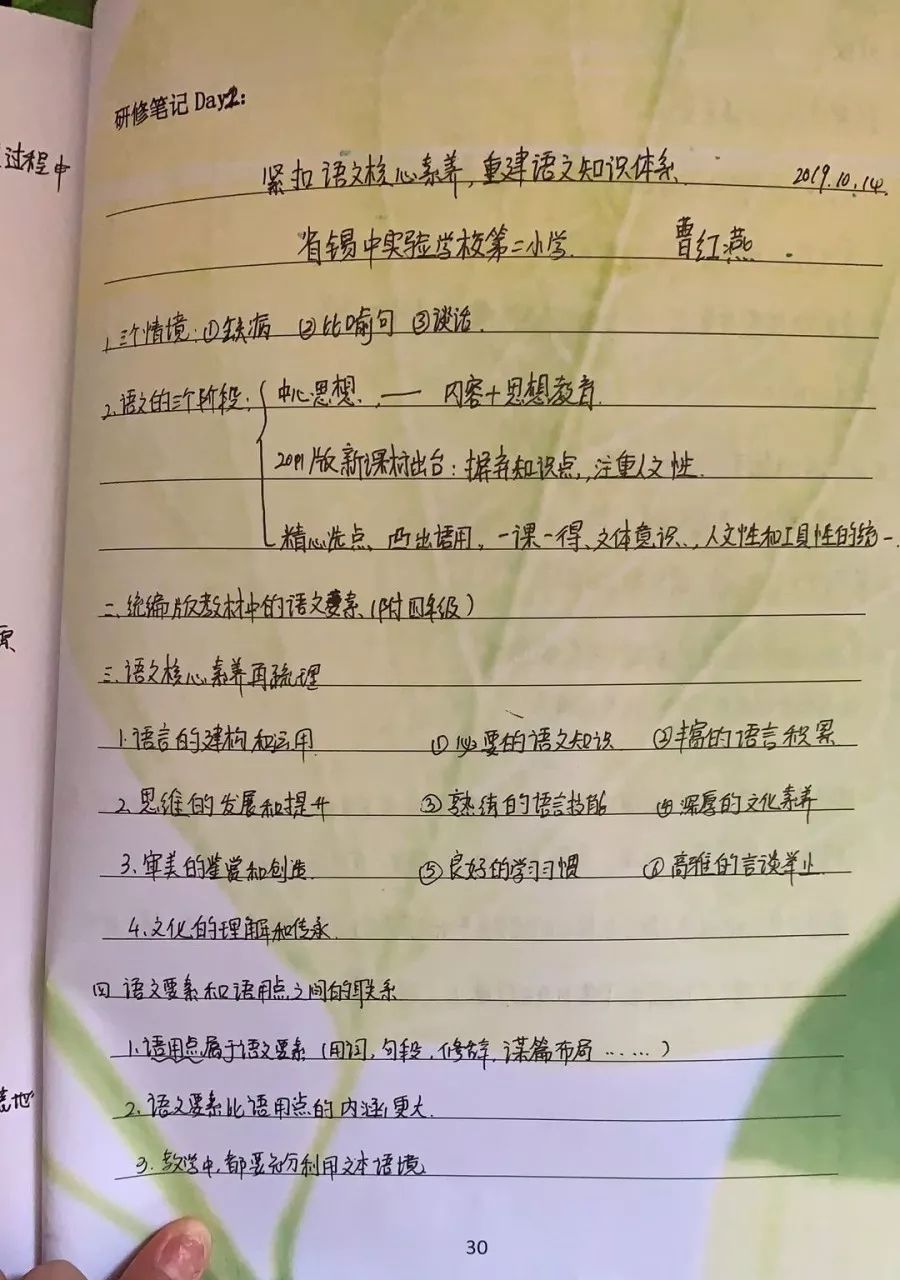 过程中
研修笔记 Day2:
紧扣语文核心素养,重建语文知识体系 2019.10.14
省锡中实验学校第二小学 曹红燕.
1.三个情境:① ② 比喻句 ③ 谈话.
2.语文的三个阶段: 中心思想. —— 内容+思想教育.
版新课材出台:摒弃知识点,注重人文性.
精心选点、凸出语用,一课一得、文体意识、人文性和工具性的统一.
二.统编版教材中的语文要素(附四年级)
三.语文核心素养再梳理
1.语言的建构和运用 ①必要的语文知识 ②丰富的语言积累
2.思维的发展和提升 ③熟练的语言技能 ④深厚的文化素养
3.审美的鉴赏和创造. ⑤良好的学习习惯 ⑥高雅的言谈举止.
4.文化的理解和传承.
四 语文要素和语用点之间的联系
1.语用点属于语文要素(用词,句段,修辞,谋篇布局……)
2.语文要素比语用点的内涵更大.
3.教学中,都要充分利用文本语境
30